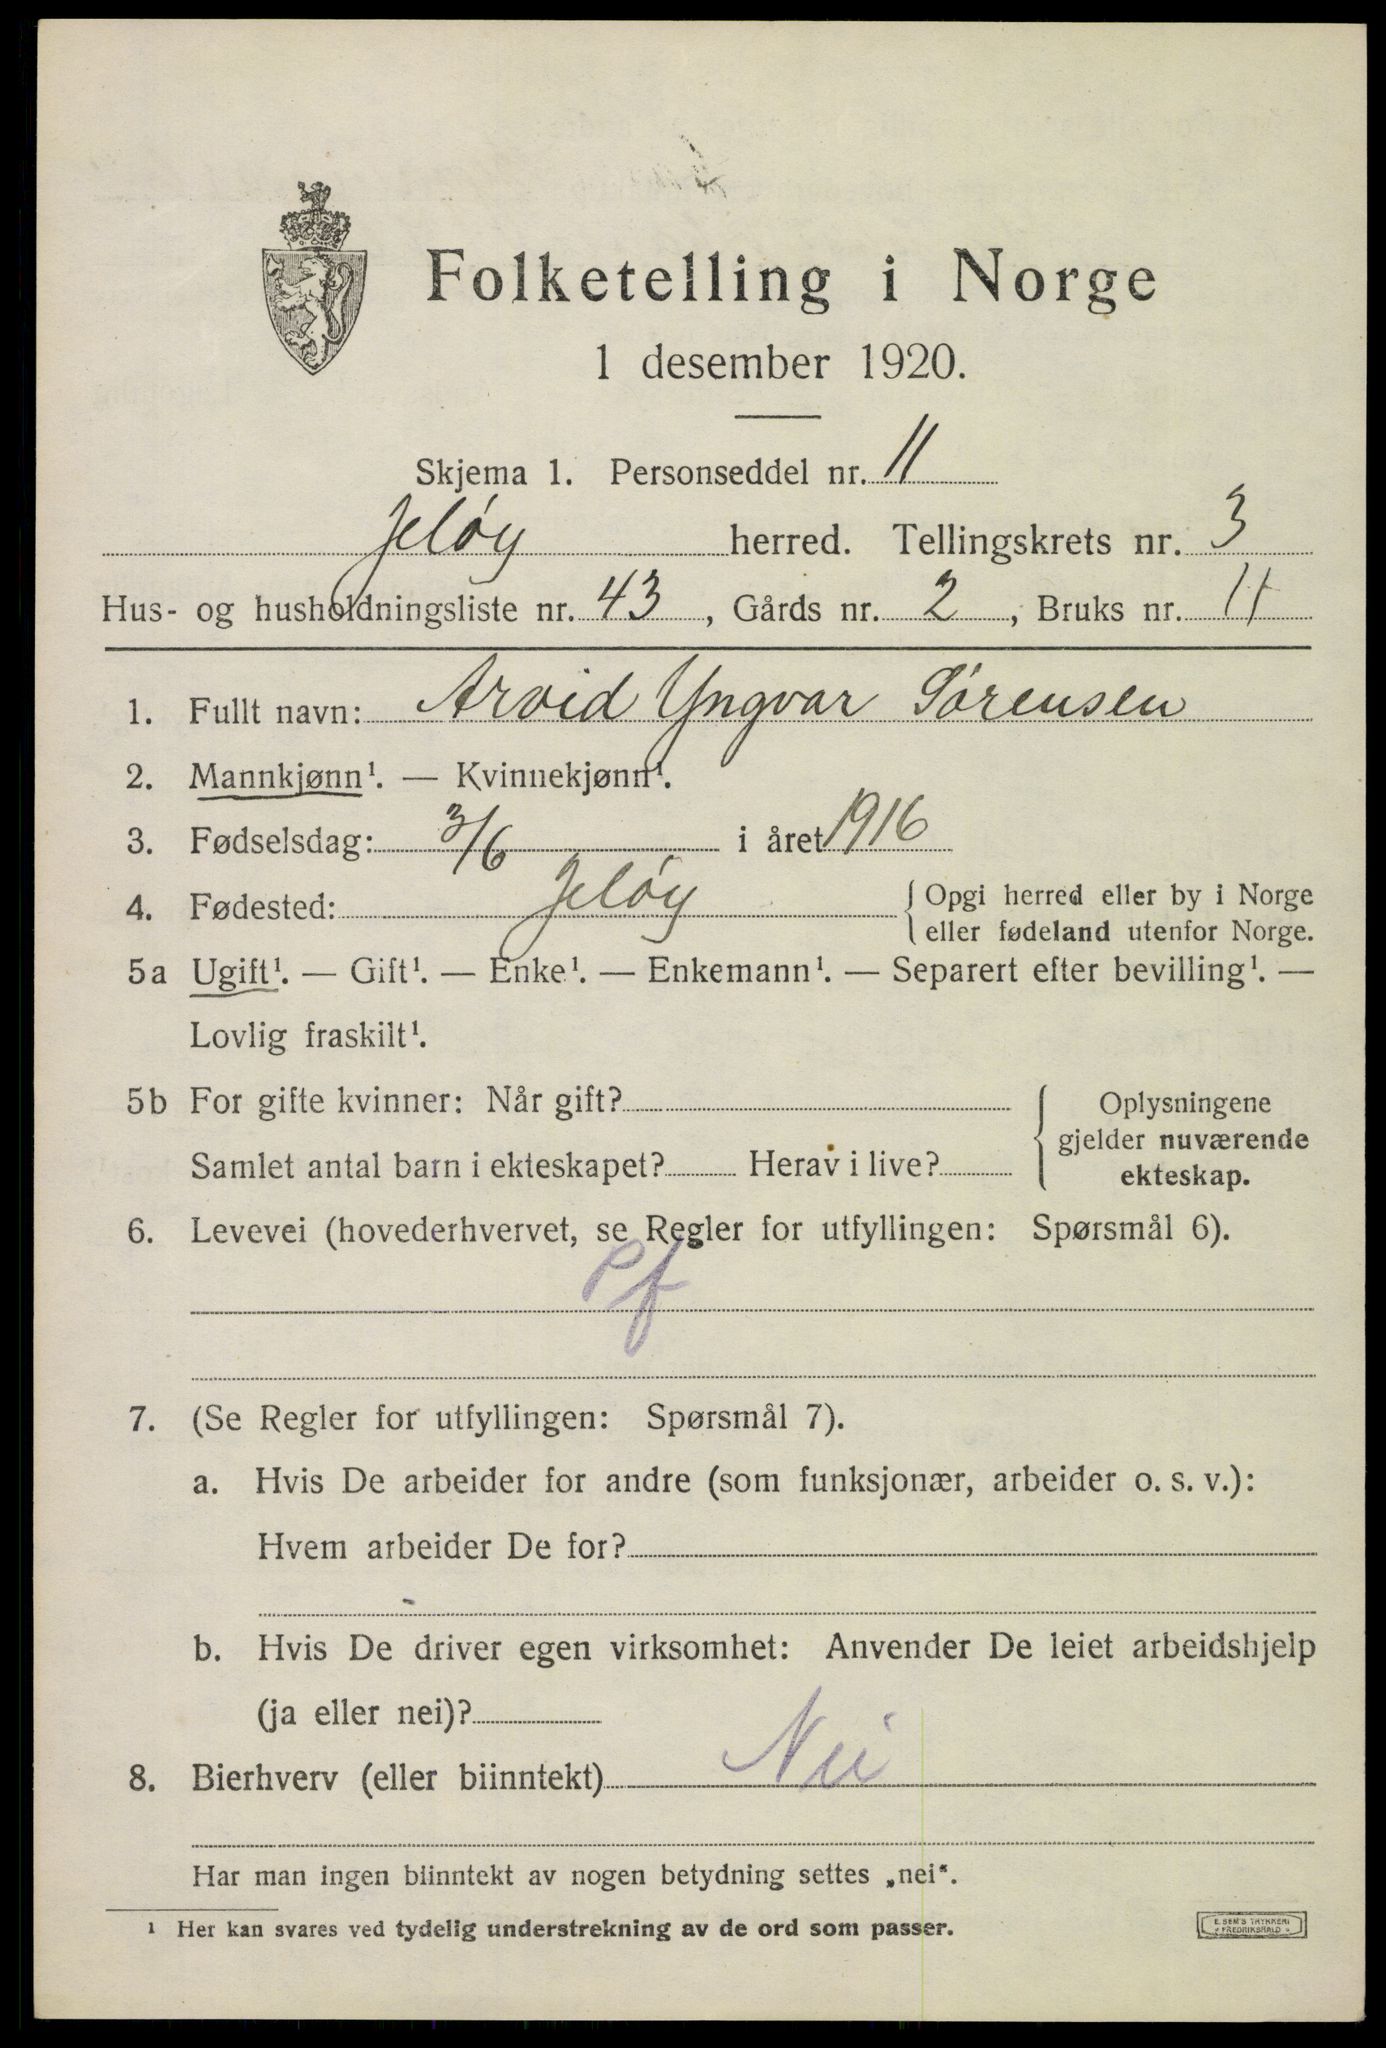 Folketelling i Norge
1 desember 1920.
Skjema 1. Personseddel nr. 11
Jeløy herred. Tellingskrets nr. 3
Hus- og husholdningsliste nr. 43, Gårds nr. 2, Bruks nr. 11
1. Fullt navn: Arvid Yngvar Sørensen
2. Mannkjønn¹. — Kvinnekjønn¹.
3. Fødselsdag: 3/6 i året 1916
4. Fødested: Jeløy { Opgi herred eller by i Norge
eller fødeland utenfor Norge.
5a Ugift¹. — Gift¹. — Enke¹. — Enkemann¹. — Separert efter bevilling¹. —
Lovlig fraskilt¹.
5b For gifte kvinner: Når gift?
Samlet antal barn i ekteskapet? Herav i live?
Oplysningene
gjelder nuværende
ekteskap.
6. Levevei (hovederhvervet, se Regler for utfyllingen: Spørsmål 6).
Pf
7. (Se Regler for utfyllingen: Spørsmål 7).
a. Hvis De arbeider for andre (som funksjonær, arbeider o. s. v.):
Hvem arbeider De for?
b. Hvis De driver egen virksomhet: Anvender De leiet arbeidshjelp
(ja eller nei)?
8. Bierhverv (eller biinntekt) Nei
Har man ingen biinntekt av nogen betydning settes „nei“.
¹ Her kan svares ved tydelig understrekning av de ord som passer.
E. SEM'S TRYKKERI
FREDRIKSHALD